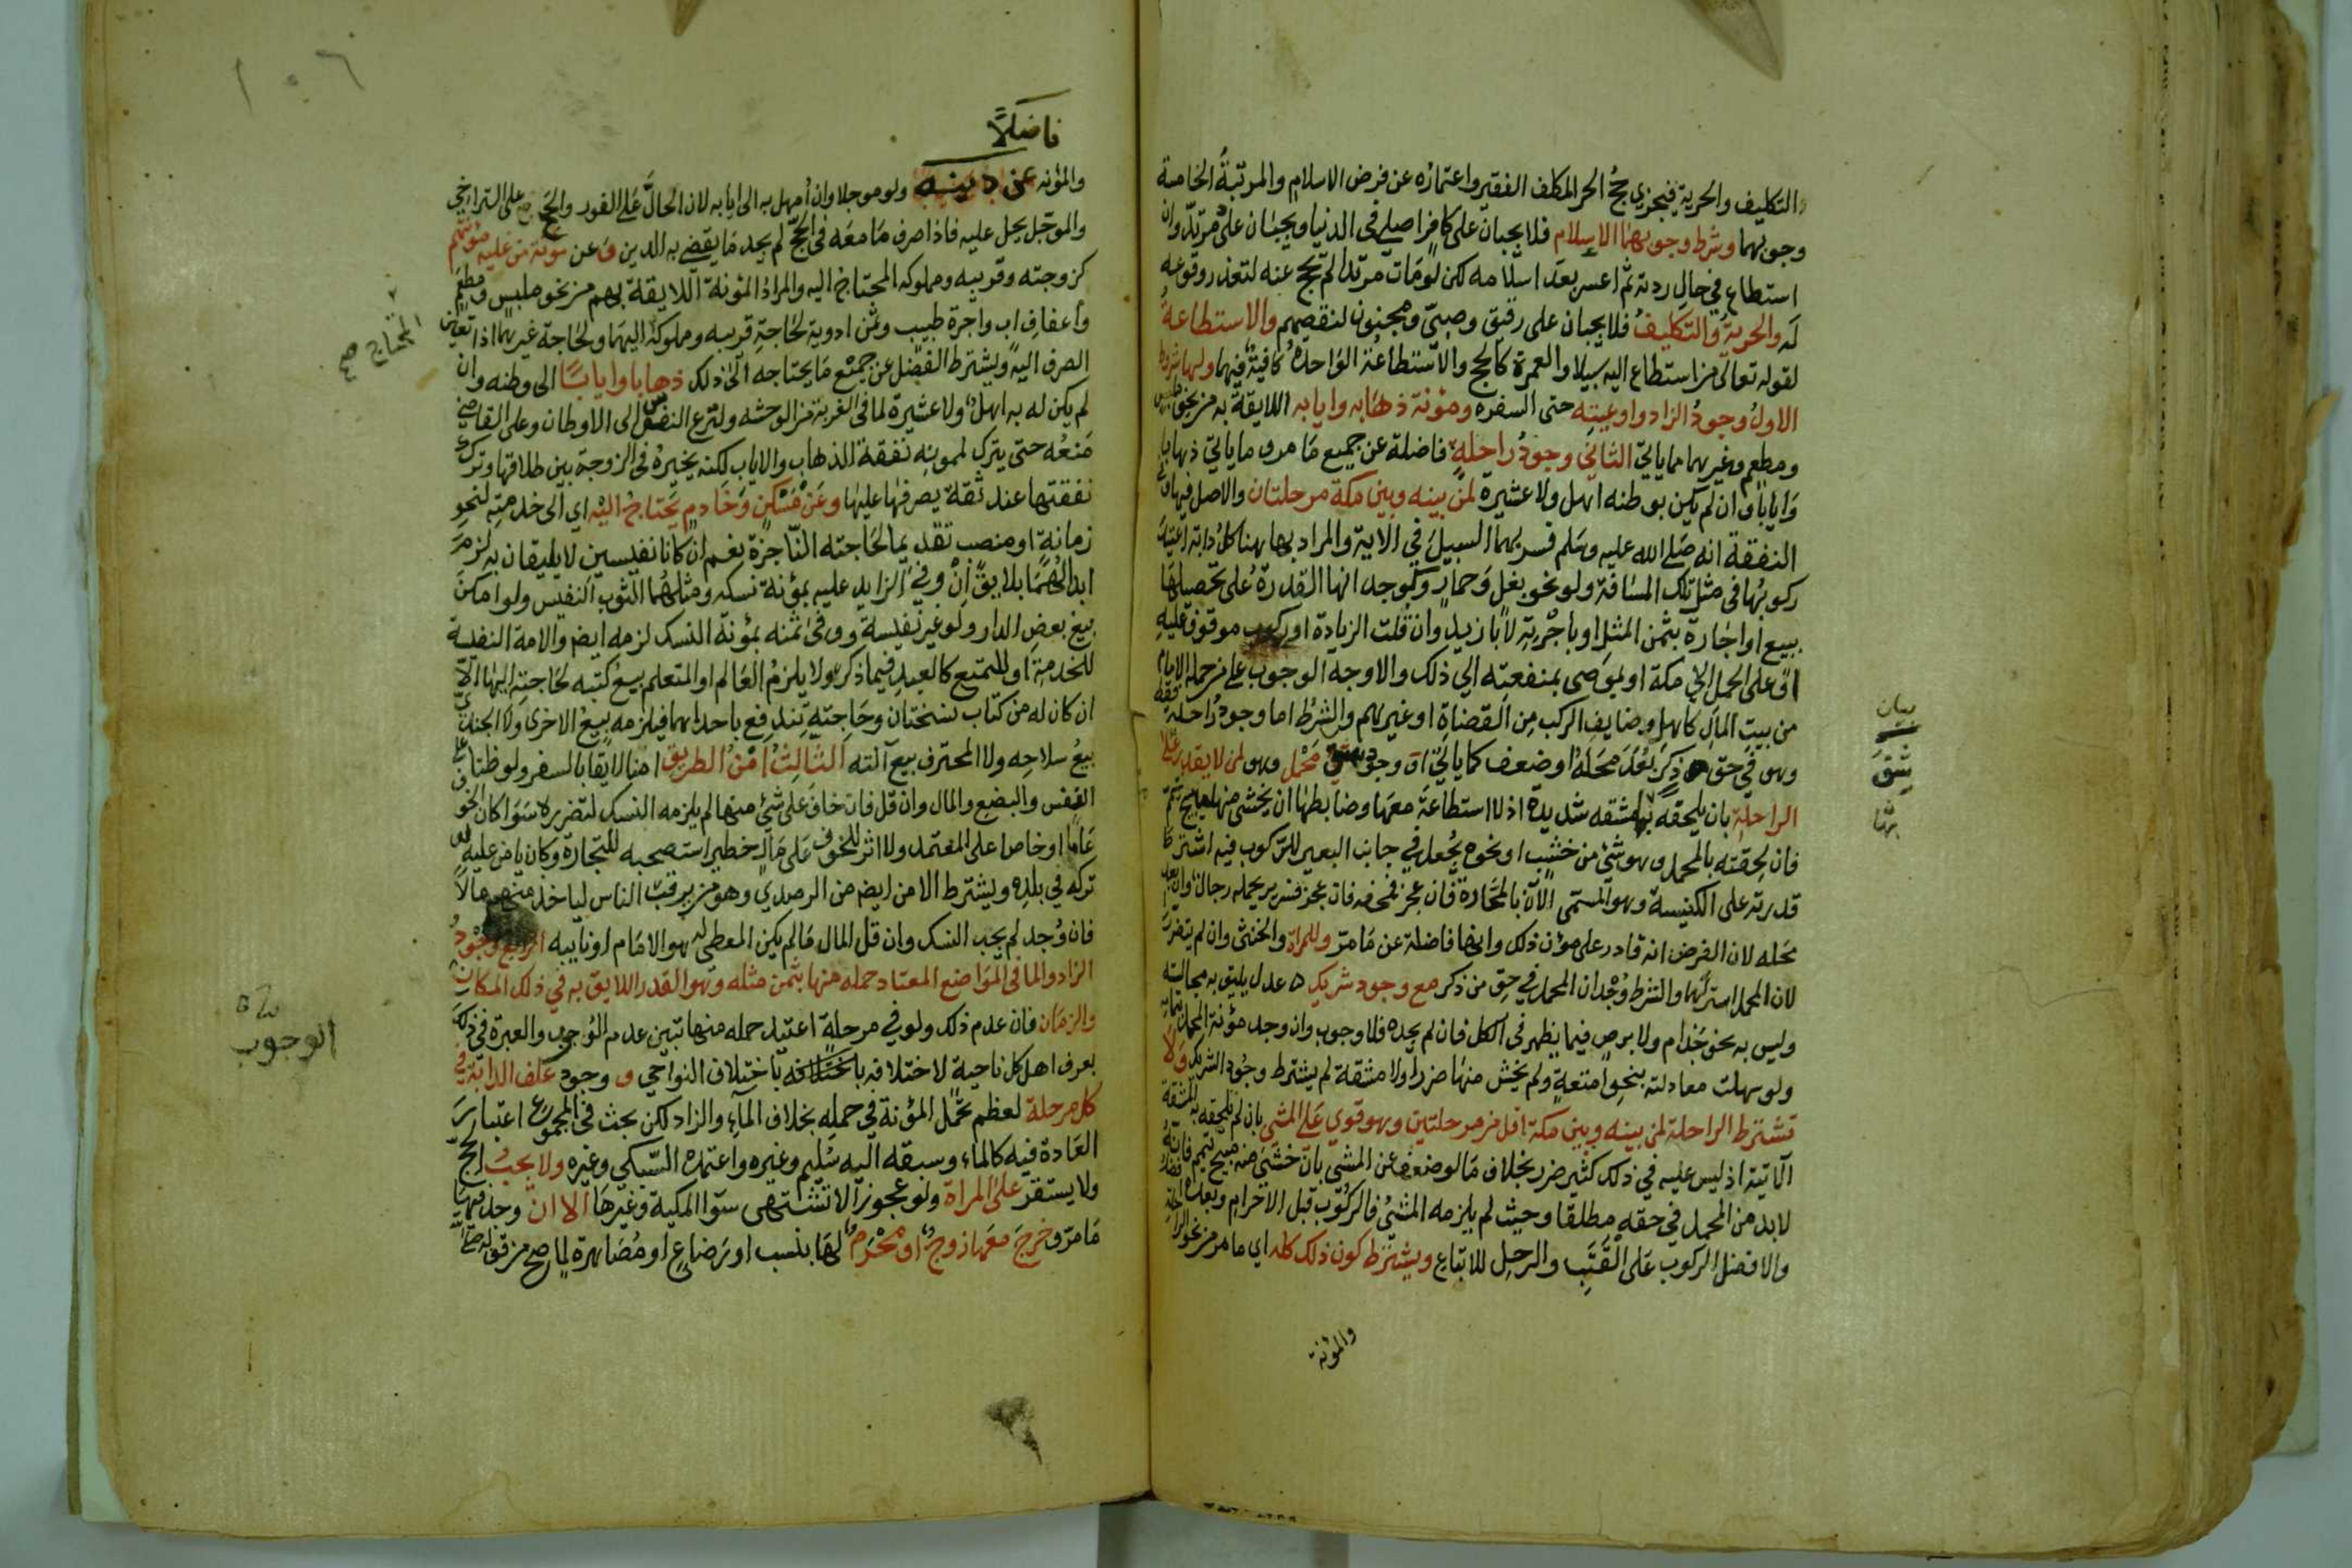 والتكليف والحرية فيجزي حج الحر المكلف الفقير واعتماره عن فرض الاسلام والمرتبة الخامسة
وجوبهما وشرط وجوبهما الاسلام فلا يجبان على كافر اصلي في الدنيا ويجبان على مرتد وان
استطاع في حال ردته ثم اعسر بعد اسلامه لكن لو مات مرتدا لم يحج عنه لتعذر وقوعه
له والحرية والتكليف فلا يجبان على رقيق وصبي ومجنون لنقصهم والاستطاعة
لقوله تعالى من استطاع اليه سبيلا والعمرة كالحج والاستطاعة الواحدة كافية فيهما ولها شروط
الاول وجود الزاد واوعيته حتى السفره ومؤنة ذهابه وايابه اللايقة به من نحو ملبس
ومطعم وغيرهما مما ياتي الثاني وجود راحلة فاضلة عن جميع ما مر وما ياتي ذهابا
وايابا وان لم يكن بوطنه اهل ولا عشيرة لمن بينه وبين مكة مرحلتان والاصل فيها
النفقة انه صلى الله عليه وسلم فسر بهما السبيل في الاية والمراد بها هنا كل دابة اعتيد
ركوبها في مثل تلك المسافة ولو نحو بغل وحمار ويوجد انها القدرة على تحصيلها
ببيع او اجارة بثمن المثل او باجرته لا بازيد وان قلت الزيادة او ركوب موقوف عليه
او على الحمل الى مكة او لموصى بمنفعته الى ذلك والاوجه الوجوب على من حمله الامام
من بيت المال كاهل وضايف الركب من القضاة او غيرهم والشرط اما وجود راحلة فقط
وهو في حق ذكر بعد محله او ضعف كما ياتي او وجود شق محمل وهو لمن لا يقدر مثلا
الراحلة بان يلحقه بها مشقه شديدة اذ لا استطاعة معها وضابطها ان يخشى منها مبيح تيمم
فان لحقته بالمحمل وهو شيء من خشب او نحوه يجعل في جانب البعير للركوب فيه اشترط
قدرته على الكنيسة وهو المسمى الآن بالمحارة فان عجز فمحفه فان عجز فسرير يحمله رجال وان بعد
محله لان الفرض انه قادر على مؤن ذلك وانها فاضلة عن ما مر وللمراة والخنثى وان لم يتضرر
لان المحمل استر لها والشرط وجدان المحمل في حق من ذكر مع وجود شريك عدل يليق به مجالسته
وليس به نحو جذام ولا برص فيما يظهر في الكل فان لم يجده فلا وجوب وان وجد مؤنة المحمل بتمامه
ولو سهلت معادلته بنحو امتعة ولم يخش منها ضررا ولا مشقة لم يشترط وجود الشريك ولا
تشترط الراحلة لمن بينه وبين مكة اقل من مرحلتين وهو قوي على المشي بان لم تلحقه به المشقة
الآتية اذ ليس عليه في ذلك كثير ضرر بخلاف ما لو ضعف عن المشي بان خشي منه مبيح تيمم فانه
لابد من المحمل في حقه مطلقا وحيث لم يلزمه المشي فالركوب قبل الاحرام وبعده افضل
والافضل الركوب على القتب والرحل للاتباع ويشترط كون ذلك كله اي ما مر من نحو الراحلة
والمؤنة
بيان
شق
فاضلًا
والمؤنه عن دينه ولو موجلا وان امهل به الى ايابه لان الحال على الفور والحج على التراخي
والموجل يحل عليه فاذا صرف ما معه في الحج لم يجد ما يقضي به الدين وعن مؤنة من عليه مؤنتهم
كزوجته وقريبه ومملوكه المحتاج اليه والمراد المؤنة اللايقة بهم من نحو ملبس ومطعم
واعفاف اب واجرة طبيب وثمن ادوية لحاجة قريبه ومملوكه اليهما ولحاجة غيرهما اذا تعين
الصرف اليه ويشترط الفضل عن جميع ما يحتاجه الى ذلك ذهابا وايابا الى وطنه وان
لم يكن له به اهل ولا عشيرة لما في الغربة من الوحشه ولنزع النفس الى الاوطان وعلى القاضي
منعه حتى يترك لممونه نفقة الذهاب والاياب لكنه يخيره في الزوجة بين طلاقها وترك
نفقتها عند ثقة يصرفها عليها وعن مسكن وخادم يحتاج اليه اي الى خدمته لنحو
زمانة او منصب تقديما لحاجته الناجزة نعم ان كانا نفيسين لا يليقان به لزمه
ابدالهما بلايق ان وفى الزايد عليه بمؤنة نسكه ومثلهما الثوب النفيس ولو امكن
بيع بعض الدار ولو غير نفيسة ووفى ثمنه بمؤنة النسك لزمه ايضا والامة النفيسة
للخدمة او للتمتع كالعبد فيما ذكر ولا يلزم العالم او المتعلم بيع كتبه لحاجته اليها الا
ان كان له من كتاب نسختان وحاجته تندفع باحداهما فيلزمه بيع الاخرى ولا الجندي
بيع سلاحه ولا المحترف بيع آلته الثالث امن الطريق امنا لايقا بالسفر ولو ظنا على
النفس والبضع والمال وان قل فان خاف على شيء منها لم يلزمه النسك لتضرره سوا كان الخوف
عاما او خاصا على المعتمد ولا اثر للخوف على مال خطير استصحبه للتجارة وكان يامن عليه لو
تركه في بلده ويشترط الامن ايضا من الرصدي وهو من يرقب الناس لياخذ منهم مالا
فان وجد لم يجب النسك وان قل المال ما لم يكن المعطي له هو الامام او نايبه الرابع وجود
الزاد والما في المواضع المعتاد حمله منها بثمن مثله وهو القدر اللايق به في ذلك المكان
والزمان فان عدم ذلك ولو في مرحلة اعتيد حمله منها تبين عدم الوجوب والعبرة في ذلك
بعرف اهل كل ناحية لاختلافه باختلاف النواحي و وجود علف الدابة في
كل مرحلة لعظم تحمل المؤنة في حمله بخلاف الماء والزاد لكن بحث في المجموع اعتبار
العادة فيه كالماء وسبقه اليه سليم وغيره واعتمده السبكي وغيره ولا يجب الحج
ولا يستقر على المراة ولو عجوزا لا تشتهى سوا المكية وغيرها الا ان وجد فيها
ما مر وخرج معها زوج او محرم لها بنسب او رضاع او مصاهرة لما صح من قوله
المحتاج صح
الوجوب
١٠٦